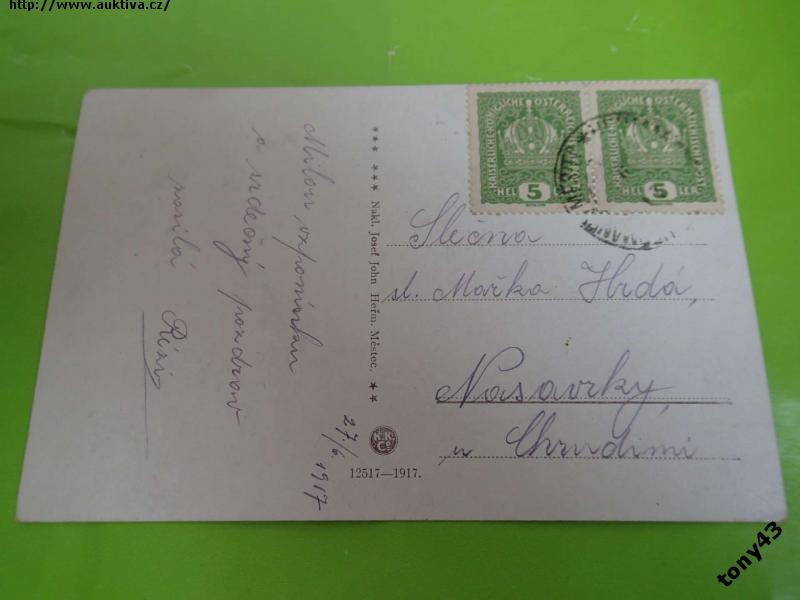 http://www.auktiva.cz/
Milou vzpomínku
a srdečný pozdrav
posílá
Rézi
27/6. 1917
*** *** Nakl. Josef John Heřm. Městec. **
K.K.
Co
12517—1917.
KAISERLICHE KÖNIGLICHE ÖSTERREICHISCHE POST
HEL 5 LER
KAISERLICHE KÖNIGLICHE ÖSTERREICHISCHE POST
HEL 5 LER
MĚSTEC
Slečna
sl. Mařka Hrdá,
Nasavrky,
u Chrudimi
tony43